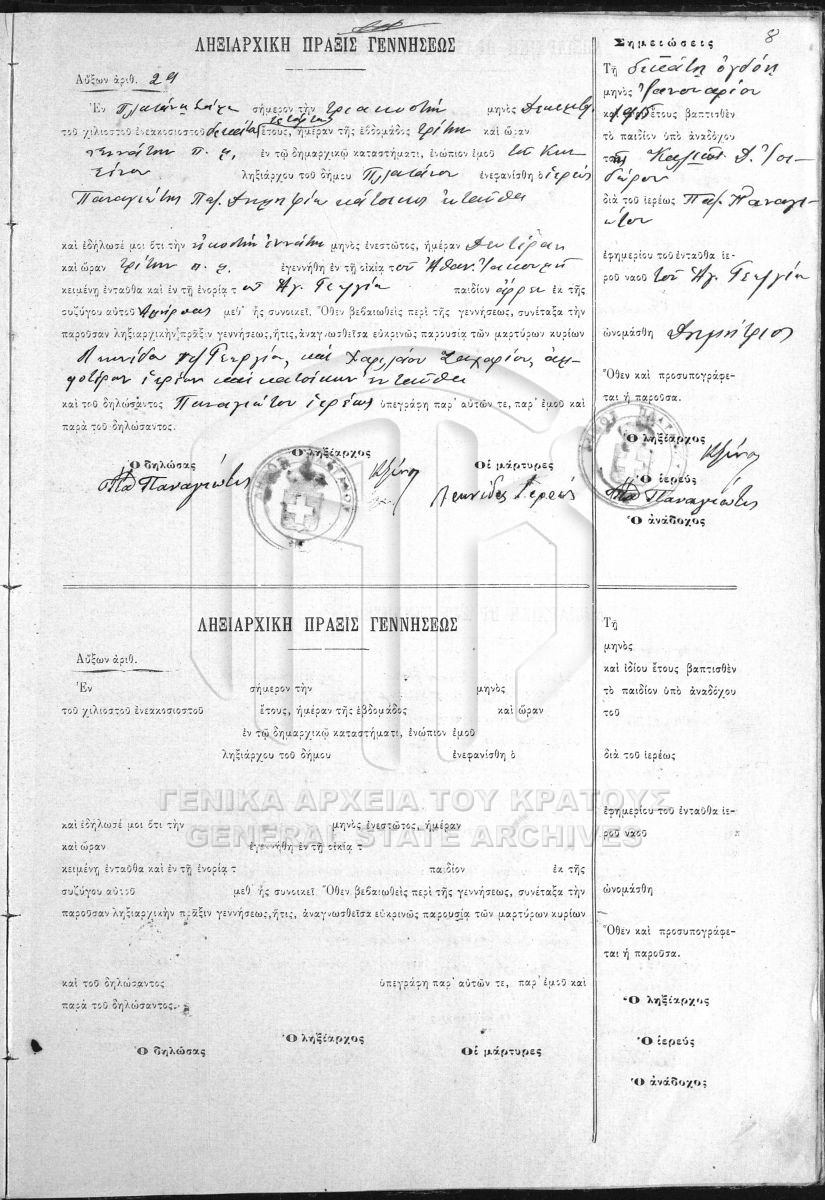 8
ΛΗΞΙΑΡΧΙΚΗ ΠΡΑΞΙΣ ΓΕΝΝΗΣΕΩΣ
Αὔξων ἀριθ. 29
Ἐν σήμερον τὴν τριακοστὴν μηνὸς Δεκεμβρ.
τοῦ χιλιοστοῦ ἐνεακοσιοστοῦ δεκάτου τετάρτου ἔτους, ἡμέραν τῆς ἑβδομάδος τρίτην καὶ ὥραν
ἐννάτην π. μ. ἐν τῷ δημαρχικῷ καταστήματι, ἐνώπιον ἐμοῦ τοῦ
ληξιάρχου τοῦ δήμου Πλατάνου ἐνεφανίσθη ὁ ἱερεὺς
Παναγιώτης Παπ. Δημητρίου κάτοικος ἐνταῦθα
καὶ ἐδήλωσέ μοι ὅτι τὴν εἰκοστὴν ἐννάτην μηνὸς ἐνεστῶτος, ἡμέραν Δευτέραν
καὶ ὥραν τρίτην π. μ. ἐγεννήθη ἐν τῇ οἰκίᾳ τοῦ Ἀθαν.
κειμένῃ ἐνταῦθα καὶ ἐν τῇ ἐνορίᾳ τοῦ Ἁγ. Γεωργίου παιδίον ἄρρεν ἐκ τῆς
συζύγου αὐτοῦ μεθ᾽ ἧς συνοικεῖ. Ὅθεν βεβαιωθεὶς περὶ τῆς γεννήσεως, συνέταξα τὴν
παροῦσαν ληξιαρχικὴν πρᾶξιν γεννήσεως, ἥτις, ἀναγνωσθεῖσα εὐκρινῶς παρουσίᾳ τῶν μαρτύρων κυρίων
Λεωνίδα Γεωργίου, καὶ Χαριλάου Ζαχαρίου, ἀμ-
φοτέρων ἱερέων καὶ κατοίκων ἐνταῦθα
καὶ τοῦ δηλώσαντος Παναγιώτου ἱερέως ὑπεγράφη παρ᾽ αὐτῶν τε, παρ᾽ ἐμοῦ καὶ
παρὰ τοῦ δηλώσαντος.
Ὁ δηλώσας
Ὁ ληξίαρχος
Οἱ μάρτυρες
Παναγιώτης
Λεωνίδας Ἱερεύς
Σημειώσεις
Τῇ δεκάτῃ ὀγδόῃ
μηνὸς Ἰανουαρίου
1915 ἔτους βαπτισθὲν
τὸ παιδίον ὑπὸ ἀναδόχου
τῆς
διὰ τοῦ ἱερέως Παπ. Παναγι-
ώτου
ἐφημερίου τοῦ ἐνταῦθα ἱε-
ροῦ ναοῦ τοῦ Ἁγ. Γεωργίου
ὠνομάσθη Δημήτριος
Ὅθεν καὶ προσυπογράφε-
ται ἡ παροῦσα.
Ὁ ληξίαρχος
Ὁ ἱερεὺς
Παναγιώτης
Ὁ ἀνάδοχος
ΛΗΞΙΑΡΧΙΚΗ ΠΡΑΞΙΣ ΓΕΝΝΗΣΕΩΣ
Αὔξων ἀριθ.
Ἐν σήμερον τὴν μηνὸς
τοῦ χιλιοστοῦ ἐνεακοσιοστοῦ ἔτους, ἡμέραν τῆς ἑβδομάδος καὶ ὥραν
ἐν τῷ δημαρχικῷ καταστήματι, ἐνώπιον ἐμοῦ
ληξιάρχου τοῦ δήμου ἐνεφανίσθη ὁ
ΓΕΝΙΚΑ ΑΡΧΕΙΑ ΤΟΥ ΚΡΑΤΟΥΣ
GENERAL STATE ARCHIVES
καὶ ἐδήλωσέ μοι ὅτι τὴν μηνὸς ἐνεστῶτος, ἡμέραν
καὶ ὥραν ἐγεννήθη ἐν τῇ οἰκίᾳ τ
κειμένῃ ἐνταῦθα καὶ ἐν τῇ ἐνορίᾳ τ παιδίον ἐκ τῆς
συζύγου αὐτοῦ μεθ᾽ ἧς συνοικεῖ. Ὅθεν βεβαιωθεὶς περὶ τῆς γεννήσεως, συνέταξα τὴν
παροῦσαν ληξιαρχικὴν πρᾶξιν γεννήσεως, ἥτις, ἀναγνωσθεῖσα εὐκρινῶς παρουσίᾳ τῶν μαρτύρων κυρίων
καὶ τοῦ δηλώσαντος ὑπεγράφη παρ᾽ αὐτῶν τε, παρ᾽ ἐμοῦ καὶ
παρὰ τοῦ δηλώσαντος.
Ὁ ληξίαρχος
Ὁ δηλώσας
Οἱ μάρτυρες
Τῇ
μηνὸς
καὶ ἰδίου ἔτους βαπτισθὲν
τὸ παιδίον ὑπὸ ἀναδόχου
τοῦ
διὰ τοῦ ἱερέως
ἐφημερίου τοῦ ἐνταῦθα ἱε-
ροῦ ναοῦ
ὠνομάσθη
Ὅθεν καὶ προσυπογράφε-
ται ἡ παροῦσα.
Ὁ ληξίαρχος
Ὁ ἱερεὺς
Ὁ ἀνάδοχος